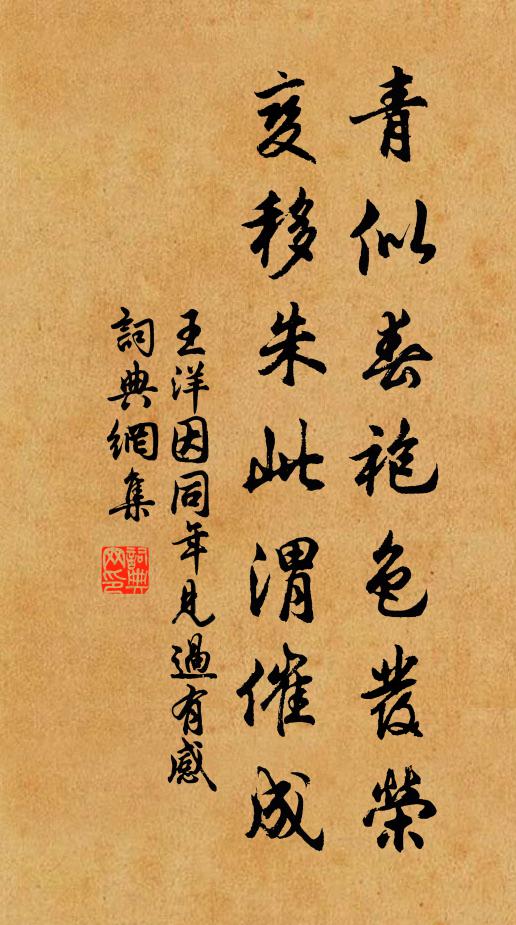 青似春袍色發榮
變移朱此渭催成
王洋因同年見過有感
詞典網集
詞典網印